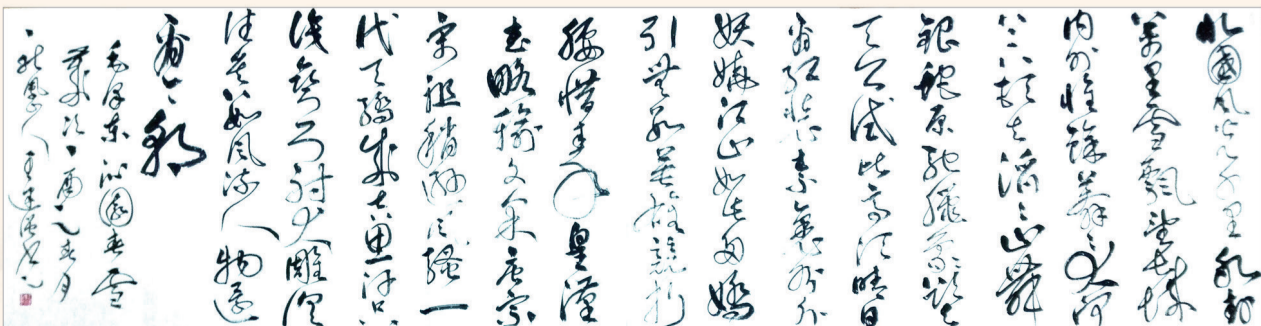 北國風光千里冰封
萬里雪飄望長城
内外惟餘莽〻大河
上下頓失滔〻山舞
銀蛇原馳蠟象欲與
天公試比高須晴日
看紅裝素裹分外
妖嬈江山如此多嬌
引無數英雄競折
腰惜秦皇漢
武略輸文采唐宗
宋祖稍遜風騷一
代天驕成吉思汗只
識彎弓射大雕俱
往矣數風流人物還
看今朝
毛澤東沁園春雪
酉春月